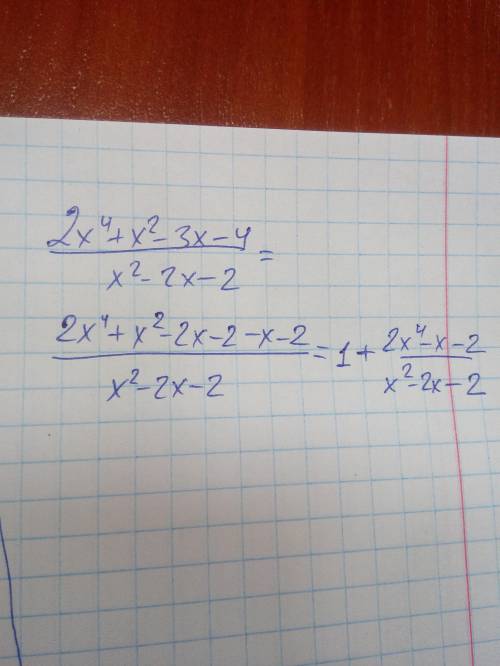 (2x⁴+x²-3x-4)/(x²-2x-2)=
(2x⁴+x²-2x-2-x-2)/(x²-2x-2)=1+(2x⁴-x-2)/(x²-2x-2)